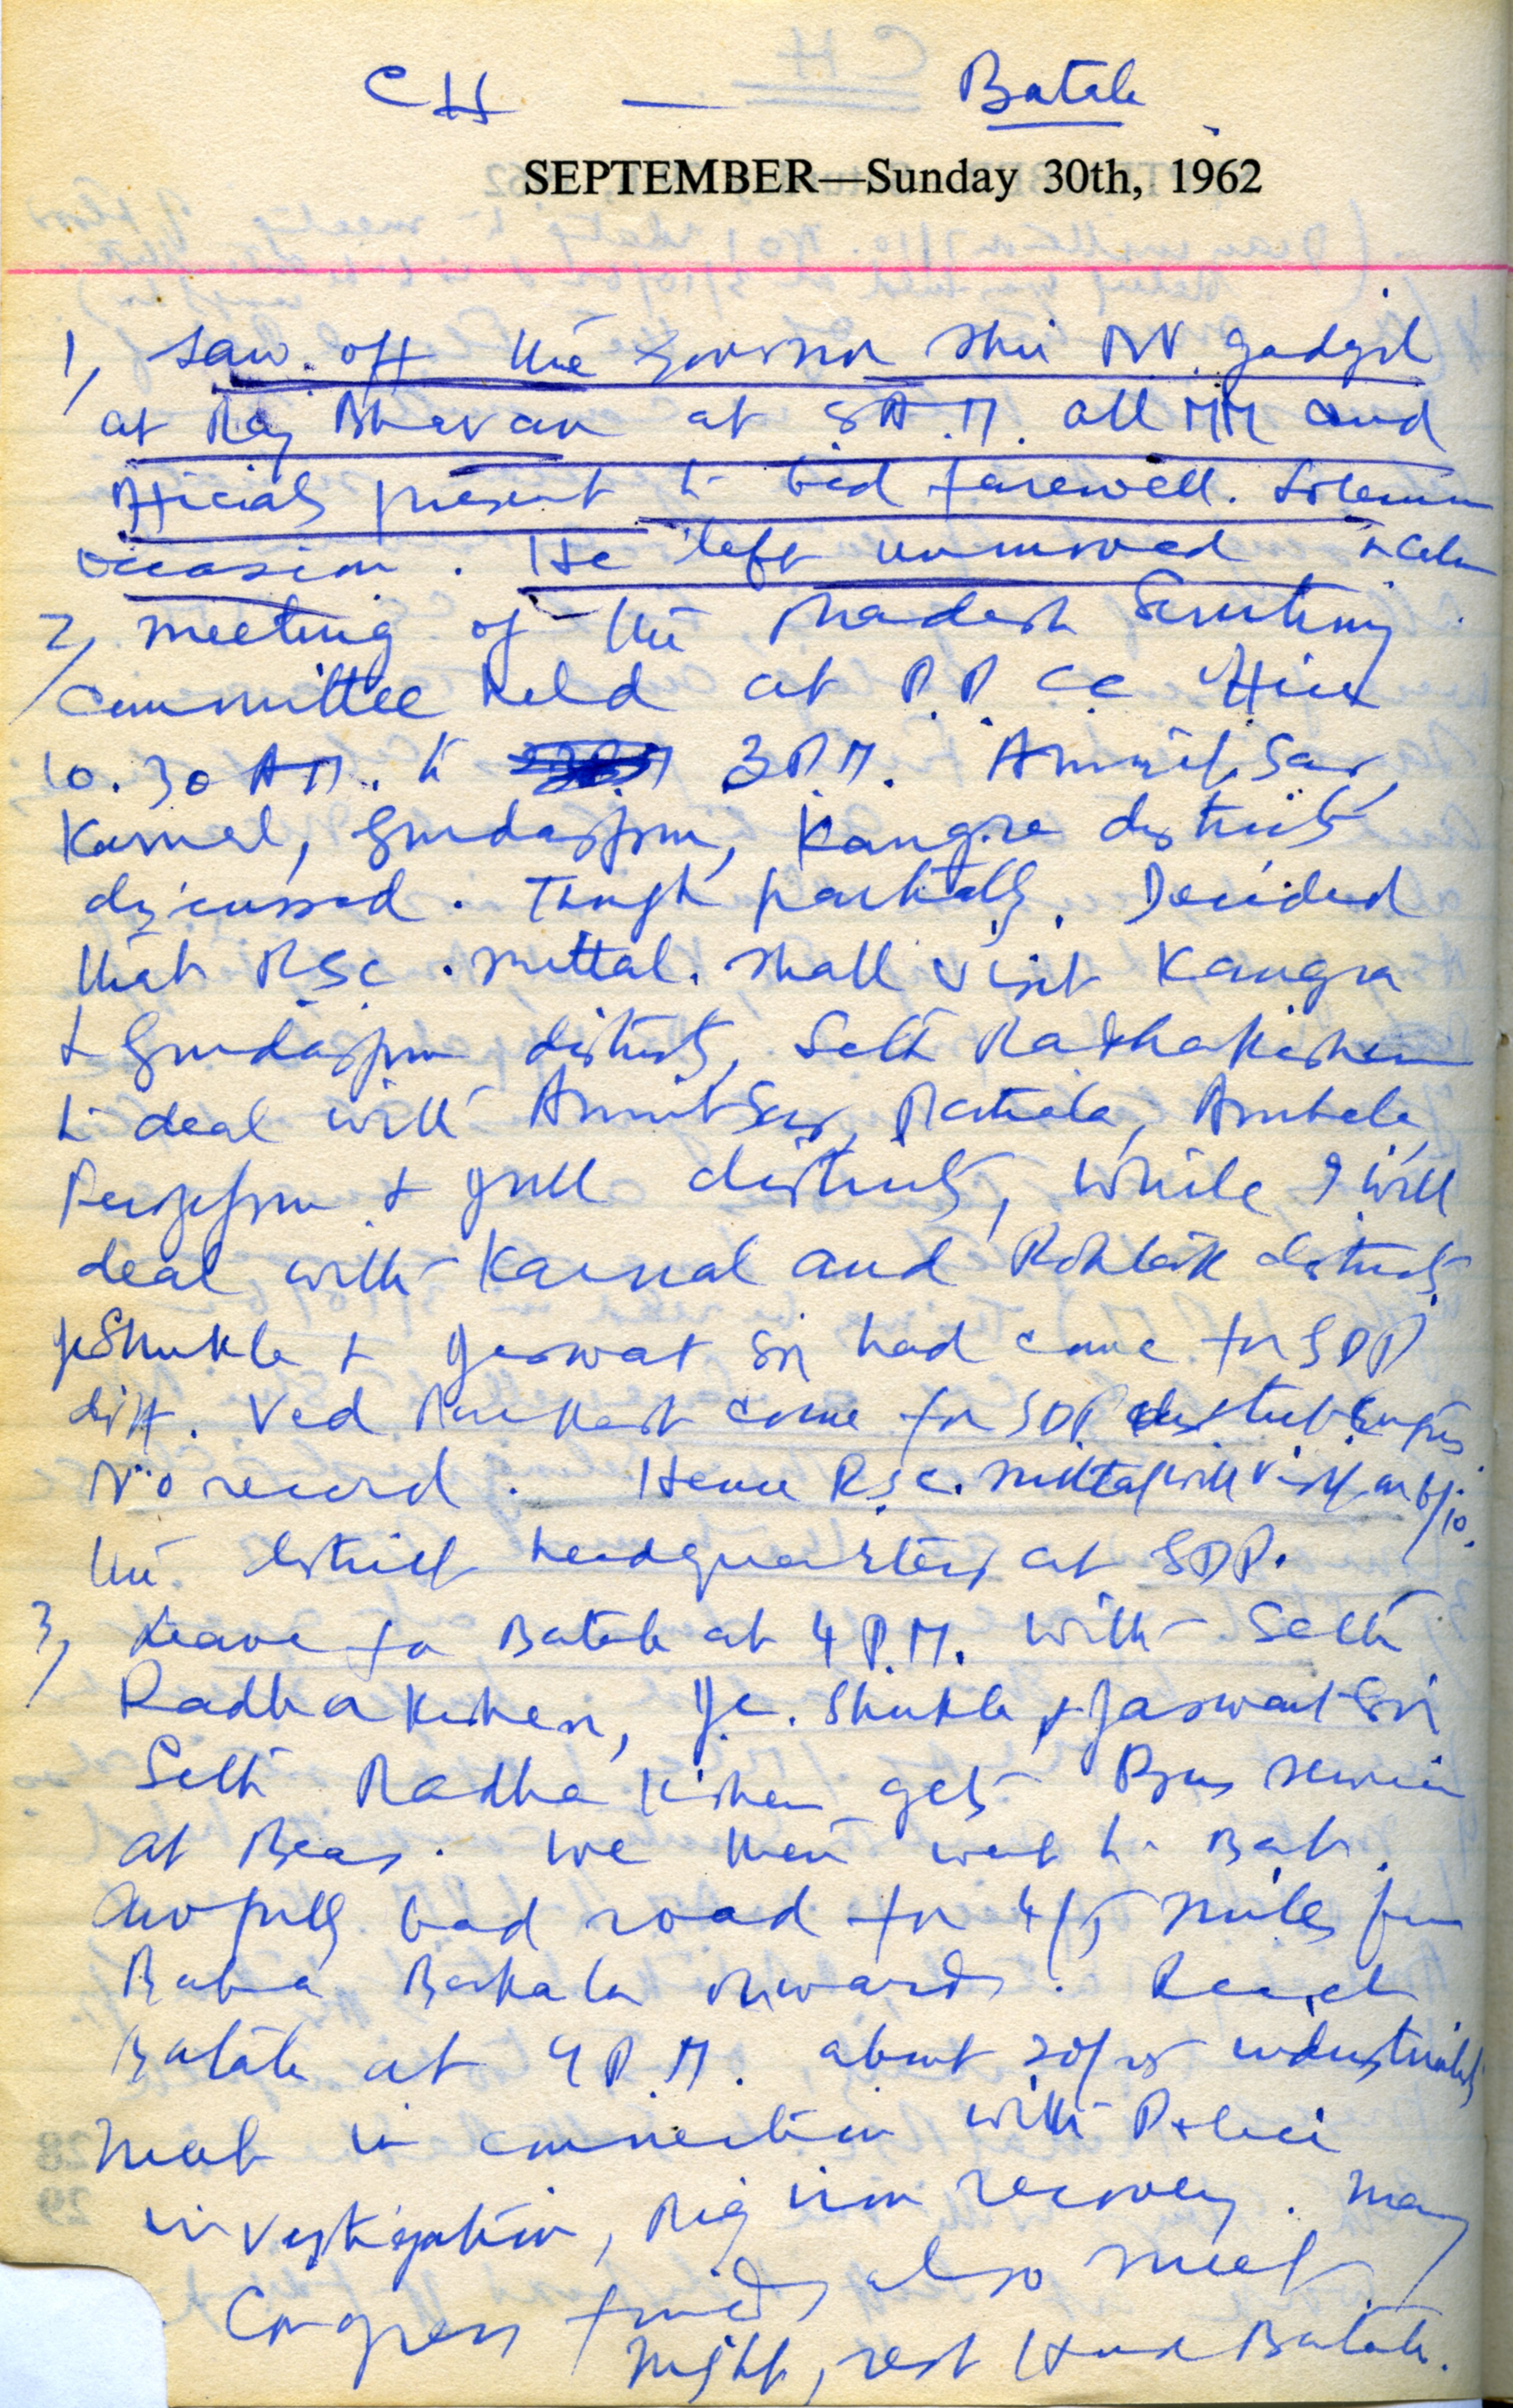 CH — Batala
SEPTEMBER—Sunday 30th, 1962
1, Saw off the Governor Shri NV Gadgil
at Raj Bhavan at 8 A.M. All MM and
officials present to bid farewell. Solemn
occasion. He left unmoved & calm
2, meeting of the Pradesh Scrutiny
Committee held at P.P.CC Office
10.30 AM. to 3 P.M. Amritsar,
Karnal, Gurdaspur, Kangra districts
discussed. Though partially. Decided
that RSC. Mittal. shall visit Kangra
& Gurdaspur districts, Seth Radhakishen
to deal with Amritsar, Patiala, Ambala,
Ferozepur & Jull districts, while I will
deal with Karnal and Rohtak districts
Shukla & Jaswant Sn had come for GDP
distt. Ved Parkash come for GDP district
No record. Hence RSC. Mittal will visit on 6/10.
the district headquarters at GDP.
3, Leave for Batala at 4 P.M. with Seth
Radha Kishen, Shukla & Jaswant Sn
Seth Radha Kishen gets Bus service
at Beas. We then went to Bat.
Awfully bad road for 4/5 miles from
Baba Bakala onwards. Reach
Batala at 9 P.M. about 20/25 industrialists
meet in connection with Police
investigation, Pig iron recovery. Many
Congress friends also meet
Night, rest House Batala.